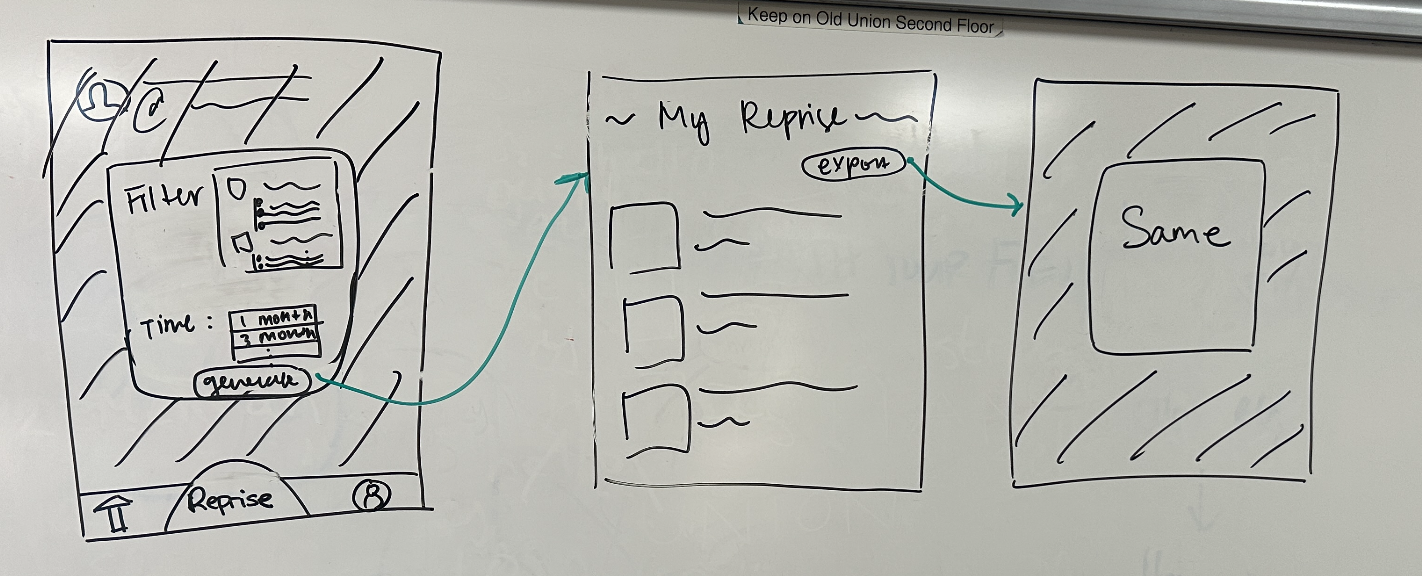 Keep on Old Union Second Floor
Filter
Time :
1 month
3 month
generate
Reprise
~ My Reprise ~
export
Same